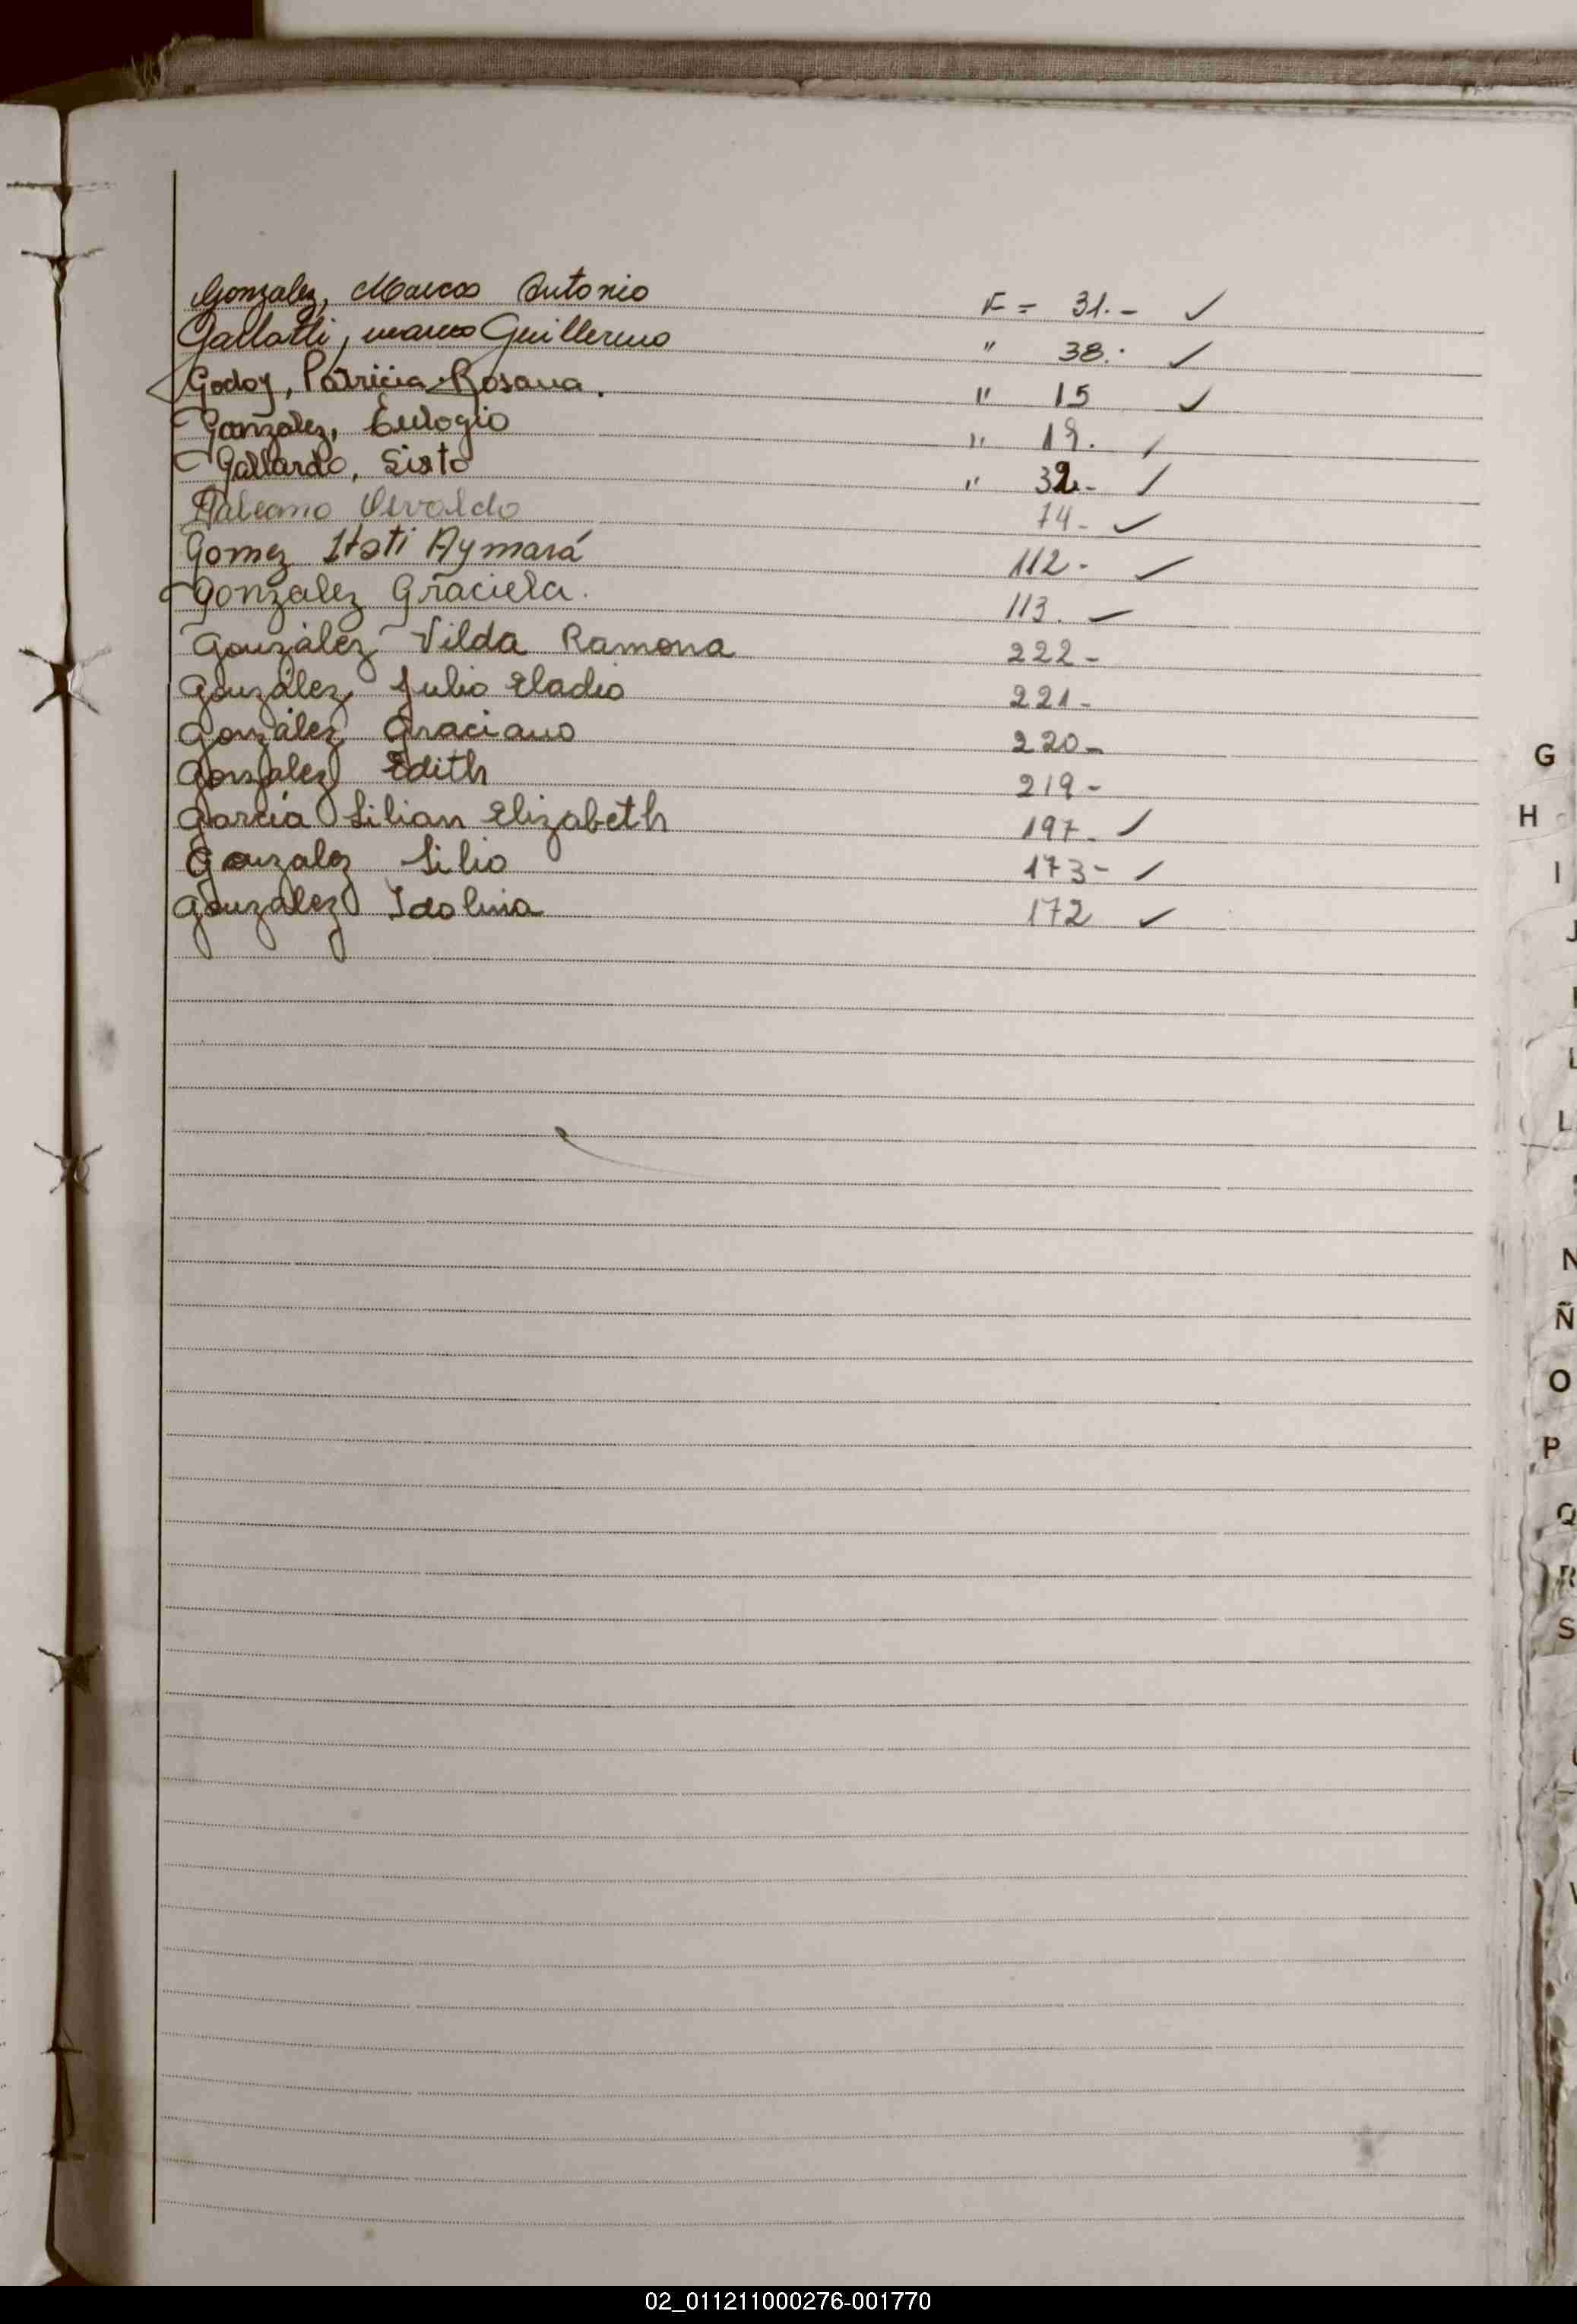 Gonzalez, Marcos Antonio F = 31.- ✓
Gallatti, marcos Guillermo " 38.- ✓
Godoy, Patricia Rosana. " 15 ✓
González, Eulogio " 19. ✓
Gallardo, Sixto " 32- ✓
Galeano Osvaldo 74- ✓
Gomez Itati Aymará 112- ✓
Gonzalez Graciela. 113. ✓
González Vilda Ramona 222-
González Julio Eladio 221-
González Graciano 220-
Gonzalez Edith 219-
García Lilian Elizabeth 197- ✓
Gonzalez Lilio 173- ✓
González Idolina 172 ✓
G
H
I
J
L
N
Ñ
O
P
Q
R
S
02_011211000276-001770